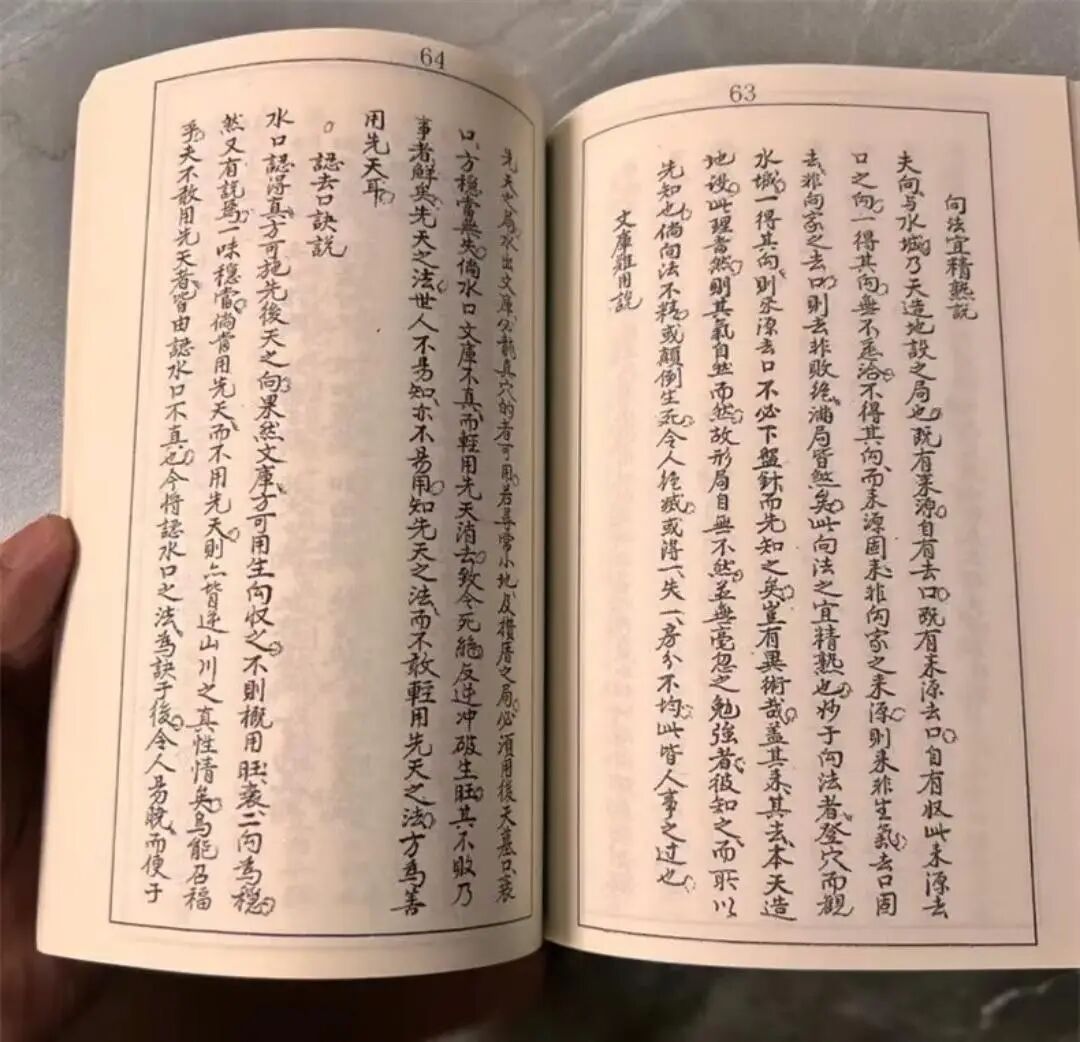 63
向法宜精熟說
夫向與水城乃天造地設之局也既有来源自有去口既有来源去口自有収此来源去
口之向一得其向無不丞洽不得其向而来源固来非向家之来源則来非生氣去口固
去非向家之去口則去非敗絶滿局皆然矣此向法之宜精熟也妙于向法者登穴而觀
水城一得其向則来源去口不必下盤針而先知之矣豈有異術哉盖其来其去本天造
地設此理當然則其氣自然而然故形局自無不然並無毫忽之勉強者彼知之而所以
先知也倘向法不精或顛倒生死令人絶或得一失一房分不均此皆人事之过也
文庫難用說
64
先天之局水出文庫必龍真穴的者可用若尋常小地及攢唇之局必須用後天墓口衰
口方穩當無失倘水口文庫不真而輕用先天消去致令死絶反逆冲破生旺其不敗乃
事者鮮矣先天之法世人不易知亦不易用知先天之法而不敢輕用先天之法方為善
用先天耳
○認去口訣說
水口認得真方可施先後天之向果然文庫方可用生向収之不則概用旺衰二向為穩
然又有說焉一味穩當倘當用先天而不用先天則亦皆逆山川之真性情矣烏能召福
乎夫不敢用先天者皆由認水口不真也今將認水口之法為訣于後令人易曉而便于